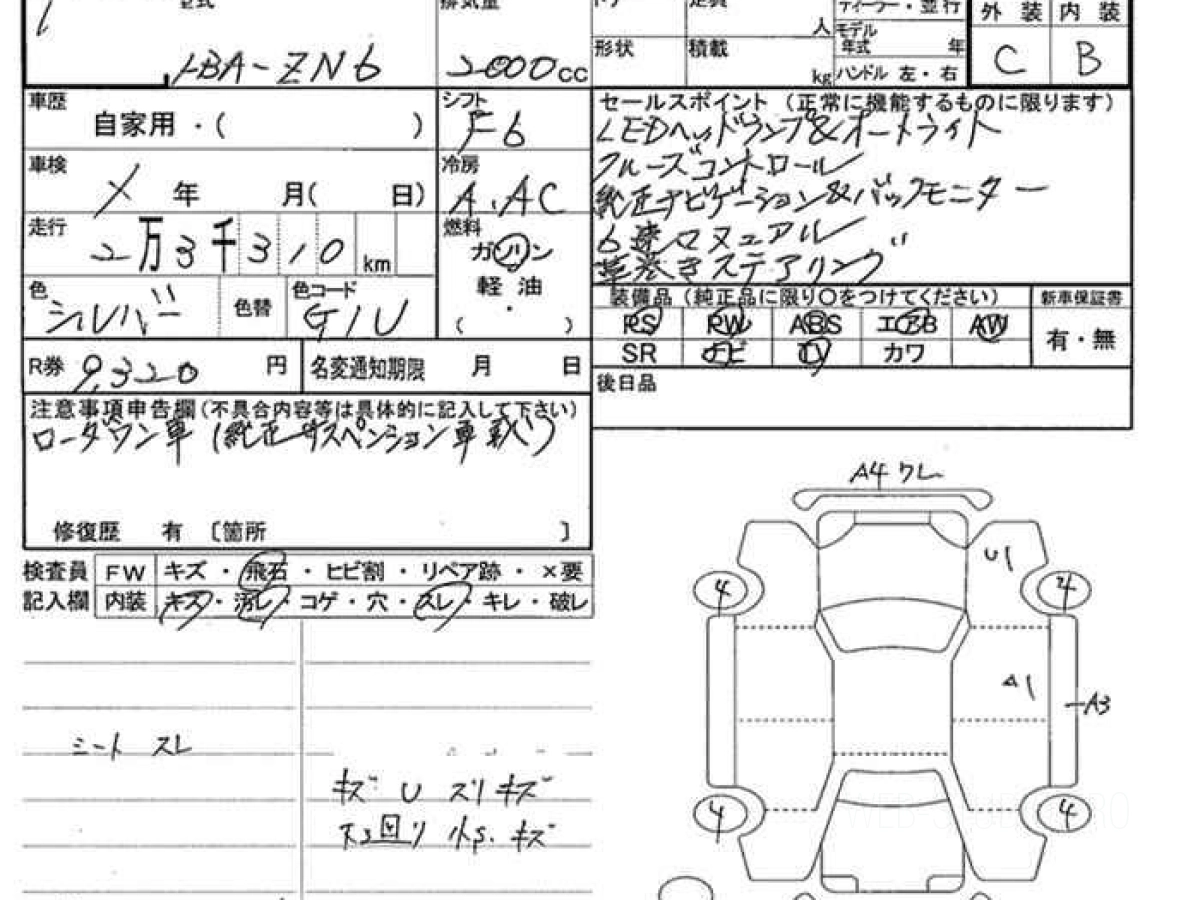 型式
DBA-ZN6
排気量
2000cc
定員
人
形状
積載
kg
ディーラー・並行
モデル
年式 年
ハンドル 左・右
外装 内装
C B
車歴
自家用・( )
シフト
F6
車検
X 年 月( 日)
冷房
A.AC
走行
2万3千310km
燃料
ガソリン
軽油
・
( )
色
シルバー
色替
色コード
G1U
R券 9,320円
名変通知期限 月 日
セールスポイント(正常に機能するものに限ります)
LEDヘッドランプ&オートライト
クルーズコントロール
純正ナビゲーション&バックモニター
6速マニュアル
革巻きステアリング
装備品(純正品に限り○をつけてください)
新車保証書
PS PW ABS エアB AW
SR ナビ TV カワ
有・無
後日品
注意事項申告欄(不具合内容等は具体的に記入して下さい)
ローダウン車(純正サスペンション車載)
修復歴 有 〔箇所 〕
検査員
記入欄
FW キズ・飛石・ヒビ割・リペア跡・×要
内装 キズ・汚レ・コゲ・穴・スレ・キレ・破レ
シート スレ
キズ U スリキズ
小S.キズ
A4 ワレ
U1
4 4
A1
A3
4 4